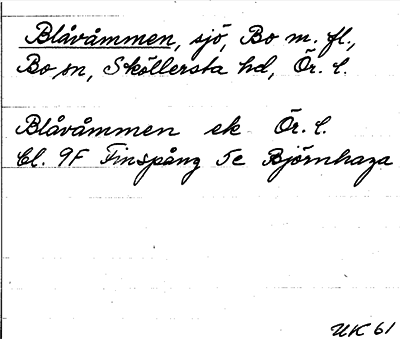 Blåvåmmen, sjö, Bo m. fl.,
Bo sn, Sköllersta hd, Ör. l.
Blåvåmmen ek Ör. l.
Bl. 9F Finspång 5e Björnhaga
UK 61